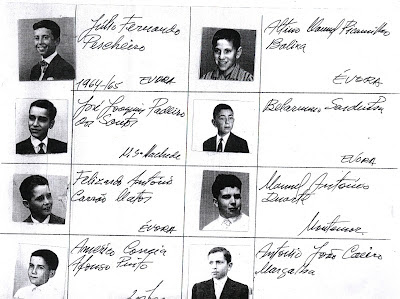 Júlio Fernando
Pescheiro
1964/65 ÉVORA
Altino Manuel
Bolixa
ÉVORA
José Joaquim Padeiro
dos Santos
Mª Machede
Belarmino
EVORA
Felizardo António
Carrão Matos
ÉVORA
Manuel António
Duarte
Montemor
Américo Correia
Afonso Pinto
António João Caeiro
Margalha